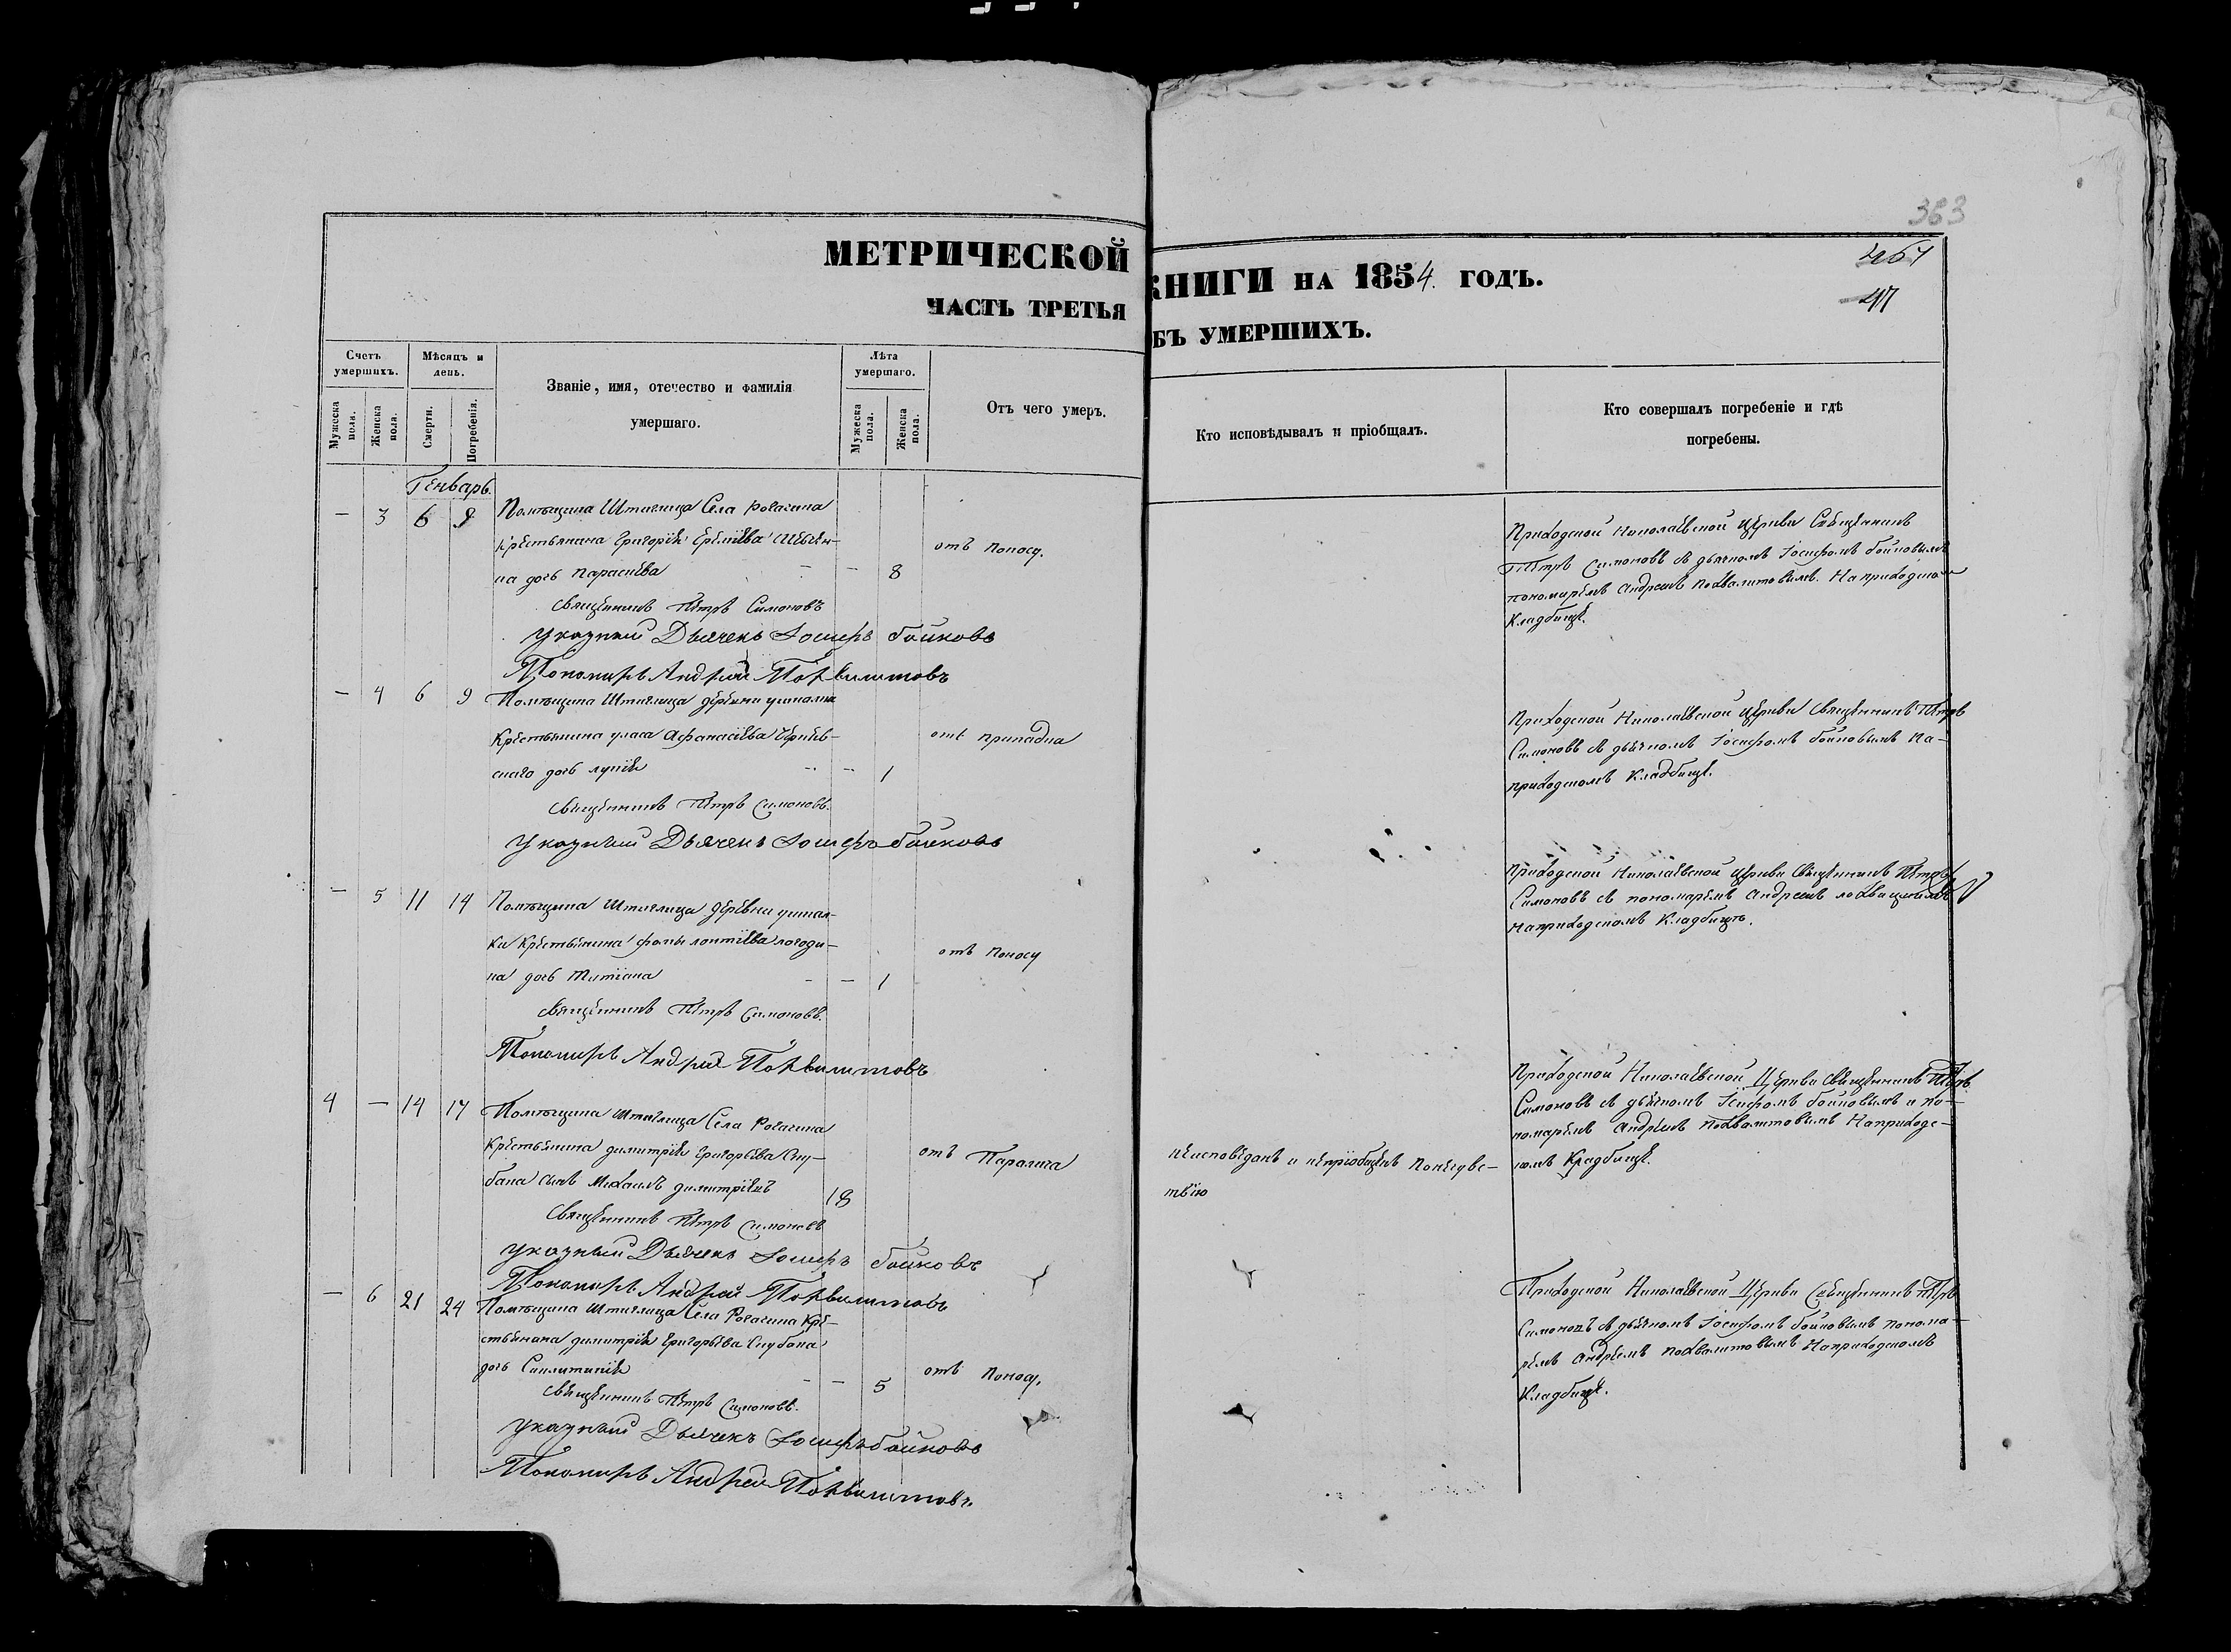 363
МЕТРИЧЕСКОЙ КНИГИ НА 1854. ГОДЪ.
ЧАСТЬ ТРЕТЬЯ
БЪ УМЕРШИХЪ.
Счетъ умершихъ.
Мѣсяцъ и день.
Званіе, имя, отечество и фамилія умершаго.
Лѣта умершаго.
Отъ чего умеръ.
Кто исповѣдывалъ и пріобщалъ.
Кто совершалъ погребеніе и гдѣ погребены.
Мужеска пола.
Женска пола.
Смерти.
Погребенія.
Мужеска пола.
Женска пола.
Генварь.
— 3 6 9 Помѣщика Штиглица Села Рогачика
крестьянина Григорія
на дочь Параскева — — 8 отъ поносу.
Священникъ Петръ Симоновъ
Указный Дьячекъ Іосифъ Бойковъ
Пономарь Андрей Похвалитовъ
Приходской Николаевской Церкви Священникъ
Петръ Симоновъ съ дьячкомъ Іосифомъ Бойковымъ
пономаремъ Андреемъ Похвалитовымъ. На приходском
Кладбищѣ.
— 4 6 9 Помѣщика Штиглица деревни
Крестьянина Уласа Афанасіева
скаго дочь — — 1 отъ припадка
Священникъ Петръ Симоновъ.
Указный Дьячекъ Іосифъ Бойковъ
Приходской Николаевской Церкви Священникъ Петръ
Симоновъ съ дьячкомъ Іосифомъ Бойковымъ На-
приходскомъ Кладбищѣ.
— 5 11 14 Помѣщика Штиглица деревни
ки Крестьянина Фомы
на дочь Татіана — — 1 отъ поносу
Священникъ Петръ Симоновъ.
Пономарь Андрей Похвалитовъ
Приходской Николаевской Церкви Священникъ Петръ
Симоновъ съ пономаремъ Андреемъ
на приходскомъ Кладбищѣ.
4 — 14 17 Помѣщика Штиглица Села Рогачика
Крестьянина Димитрія Григорьева Ску-
бака сынъ Михаилъ Димитріевъ 18 отъ Паралича
Священникъ Петръ Симоновъ
Указный Дьячекъ Іосифъ Бойковъ
Пономарь Андрей Похвалитовъ
Приходской Николаевской Церкви Священникъ Петръ
Симоновъ съ дьячкомъ Іосифомъ Бойковымъ и по-
номаремъ Андреемъ Похвалитовымъ На приходс-
комъ Кладбищѣ.
— 6 21 24 Помѣщика Штиглица Села Рогачика Кре-
стьянина Димитрія Григорьева Скубака
дочь — — 5 отъ поносу.
Священникъ Петръ Симоновъ.
Указный Дьячекъ Іосифъ Бойковъ
Пономарь Андрей Похвалитовъ.
Приходской Николаевской Церкви Священникъ Петръ
Симоновъ съ дьячкомъ Іосифомъ Бойковымъ понома-
ремъ Андреемъ Похвалитовымъ На приходскомъ
Кладбищѣ.